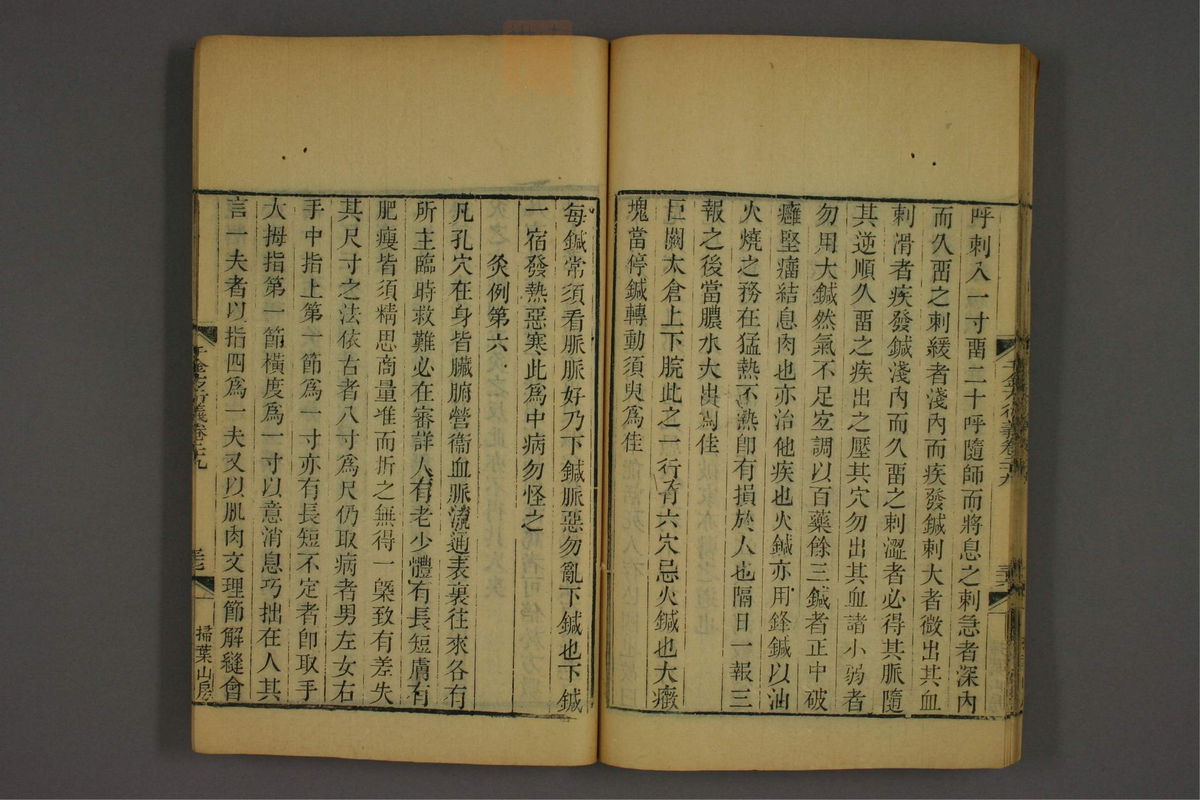 呼刺入一寸畱二十呼隨師而將息之刺急者深內
而久畱之刺緩者淺內而疾發鍼刺大者微出其血
刺滑者疾發鍼淺內而久畱之刺澀者必得其脈隨
其逆順久畱之疾出之壓其穴勿出其血諸小弱者
勿用大鍼然氣不足宜調以百藥餘三鍼者正中破
癰堅瘤結息肉也亦治他疾也火鍼亦用鋒鍼以油
火燒之務在猛熱不熱卽有損於人也隔日一報三
報之後當膿水大出爲佳
巨闕太倉上下脘此之一行有六穴忌火鍼也大癥
塊當停鍼轉動須臾爲佳
每鍼常須看脈脈好乃下鍼脈惡勿亂下鍼也下鍼
一宿發熱惡寒此爲中病勿怪之
灸例第六
凡孔穴在身皆臟腑營衞血脈流通表裏往來各有
所主臨時救難必在審詳人有老少體有長短膚有
肥瘦皆須精思商量準而折之無得一槩致有差失
其尺寸之法依古者八寸爲尺仍取病者男左女右
手中指上第一節爲一寸亦有長短不定者卽取手
大拇指第一節橫度爲一寸以意消息巧拙在人其
言一夫者以指四爲一夫又以肌肉文理節解縫會
千金方衍義卷二十九
掃葉山房